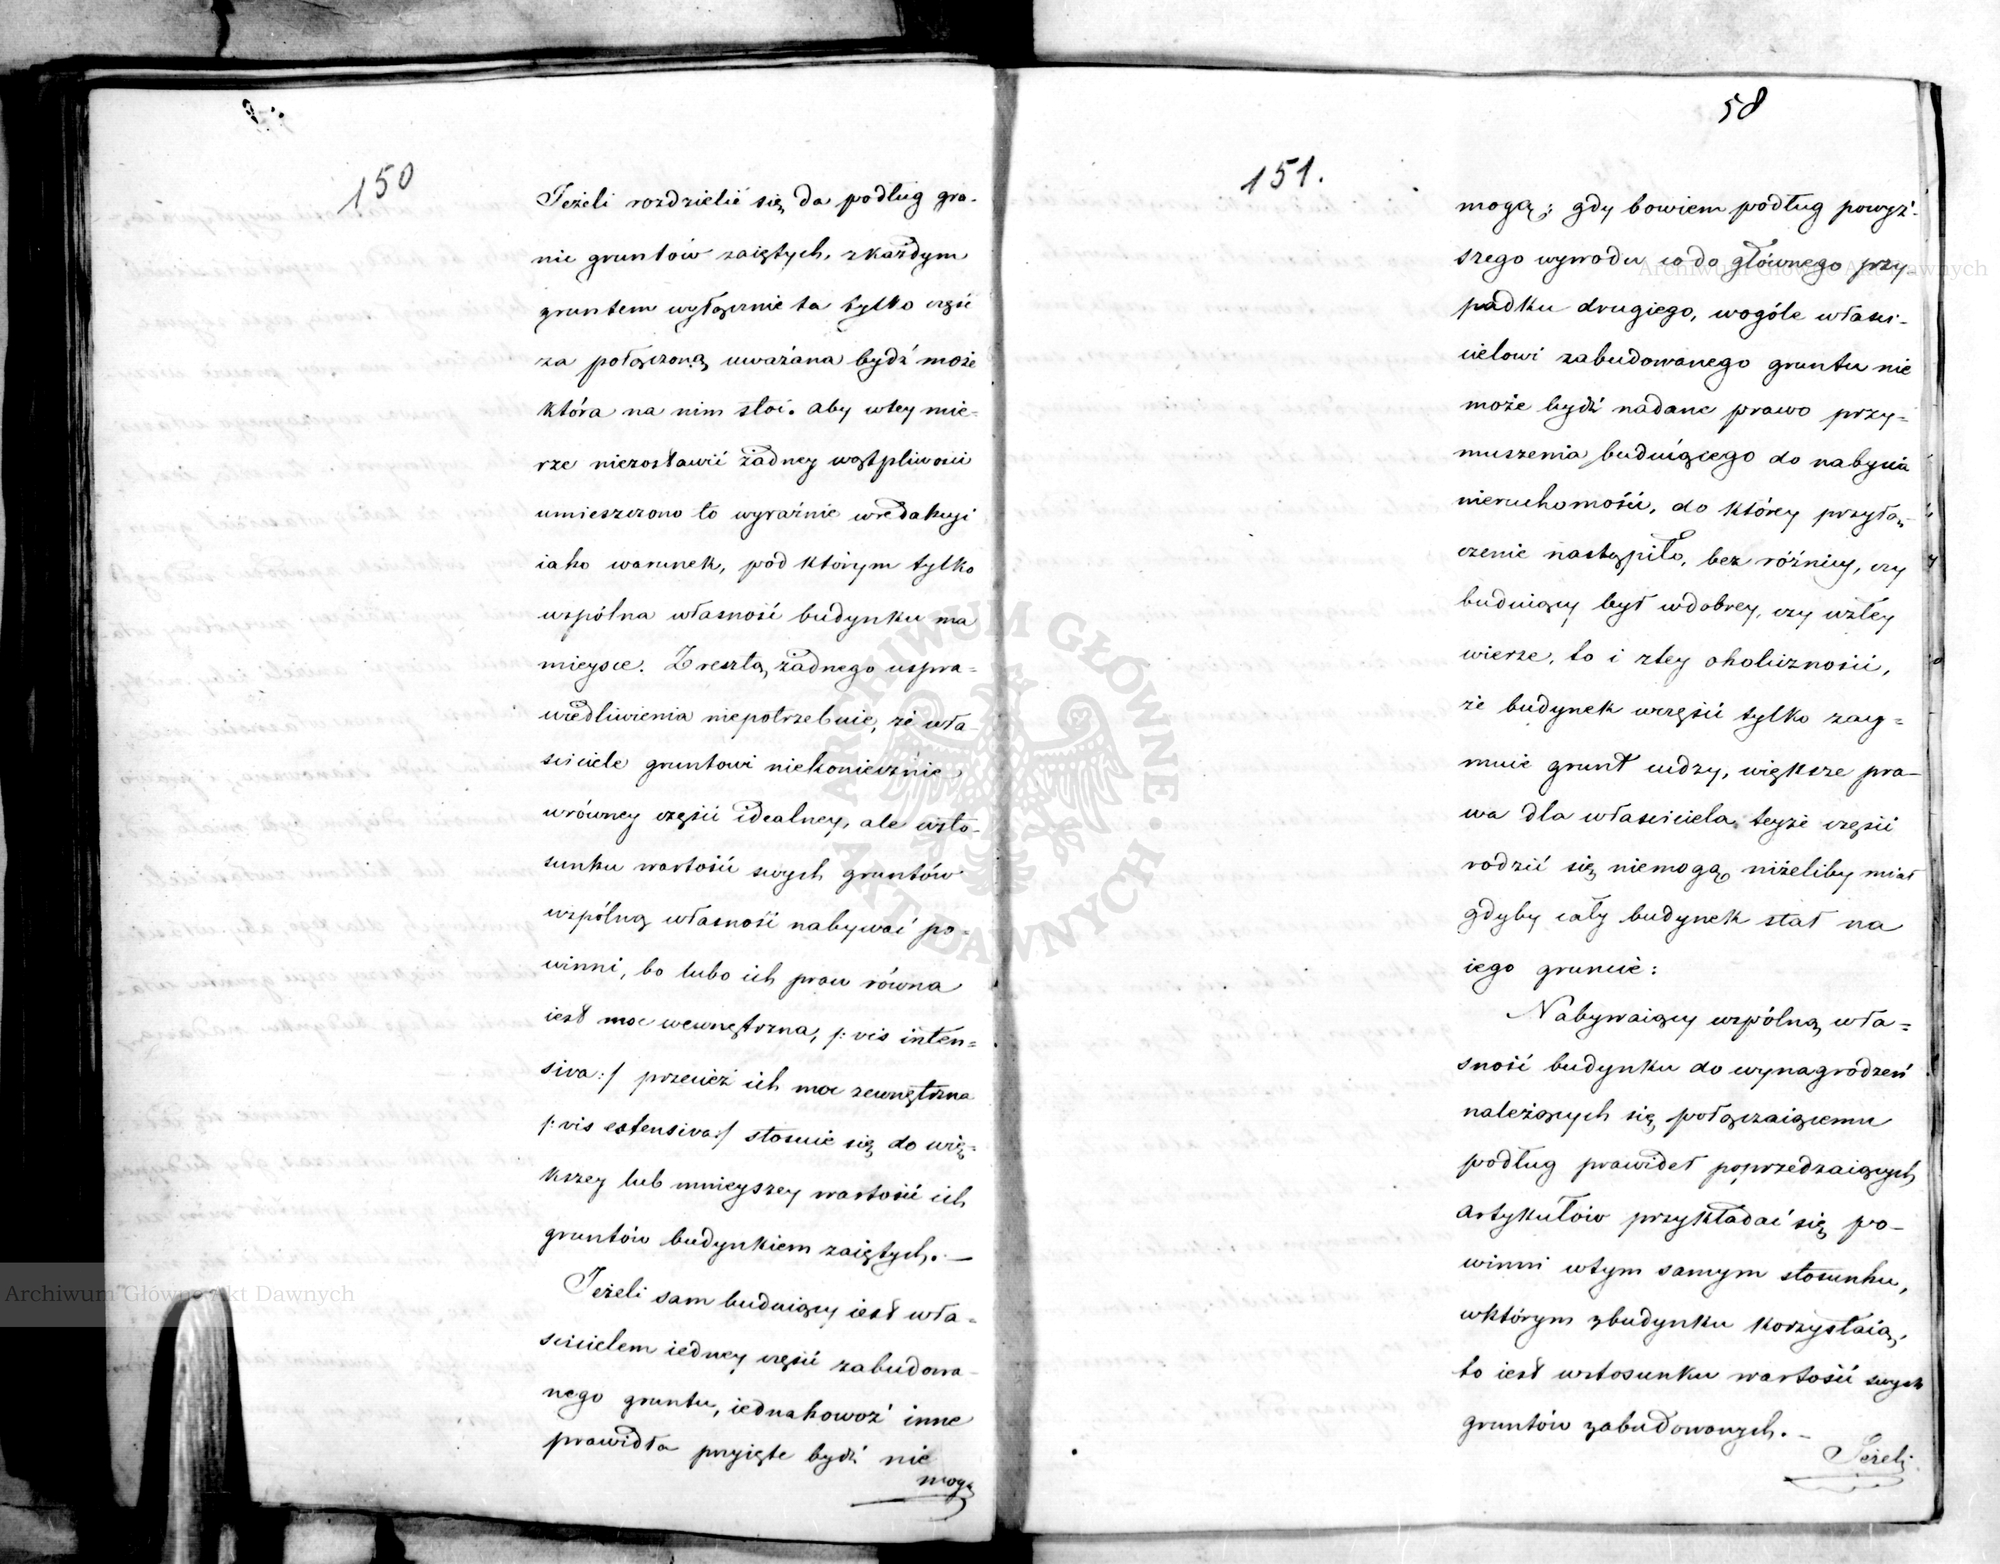 150
Jeżeli rozdzielić się da podług gra-
nic gruntów zaiętych, z każdym
gruntem wyłącznie ta tylko część
za połączoną uważana bydź może
która na nim stoi. aby wtey mie-
rze niezostawić żadney wątpliwości
umieszczono to wyraźnie wredakcyi
iako warunek, pod którym tylko
wspólna własność budynku ma
mieysce. Zresztą żadnego uspra-
wiedliwienia niepotrzebuie, że wła-
ściciele gruntowi niekoniecznie
wrówney części idealney, ale wsto-
sunku wartości swych gruntów
wspólną własność nabywać po-
winni, bo lubo ich praw równa
iest moc wewnętrzna, /: vis inten=
siva :/ przecież ich moc zewnętrzna
/: vis extensiva :/ stosuie się do wię-
kszey lub mnieyszey wartości ich
gruntów budynkiem zaiętych. —
Jeżeli sam buduiący iest wła-
ścicielem iedney części zabudowa-
nego gruntu, iednakowoż inne
prawidła przyięte bydź nie
mogą
58
151.
mogą; gdy bowiem podług powyż-
szego wywodu co do głównego przy-
padku drugiego, wogóle właści-
cielowi zabudowanego gruntu nie
może bydź nadane prawo przy-
muszenia buduiącego do nabycia
nieruchomości, do którey przyłą-
czenie nastąpiło, bez różnicy, czy
buduiący był wdobrey, czy wzłey
wierze, to i ztey okoliczności,
że budynek wczęści tylko zay=
muie grunt cudzy, większe pra-
wa dla właściciela teyże części
rodzić się niemogą, niżeliby miał
gdyby cały budynek stał na
iego gruncie:
Nabywaiący wspólną wła=
sność budynku do wynagrodzeń
należących się połączaiącemu
podług prawideł poprzedzaiących
artykułów przykładać się po-
winni wtym samym stosunku,
wktórym zbudynku korzystaią,
to iest wstosunku wartości swych
gruntów zabudowanych. —
Jeżeli
Archiwum Główne Akt Dawnych
Archiwum Główne Akt Dawnych
ARCHIWUM GŁÓWNE AKT DAWNYCH